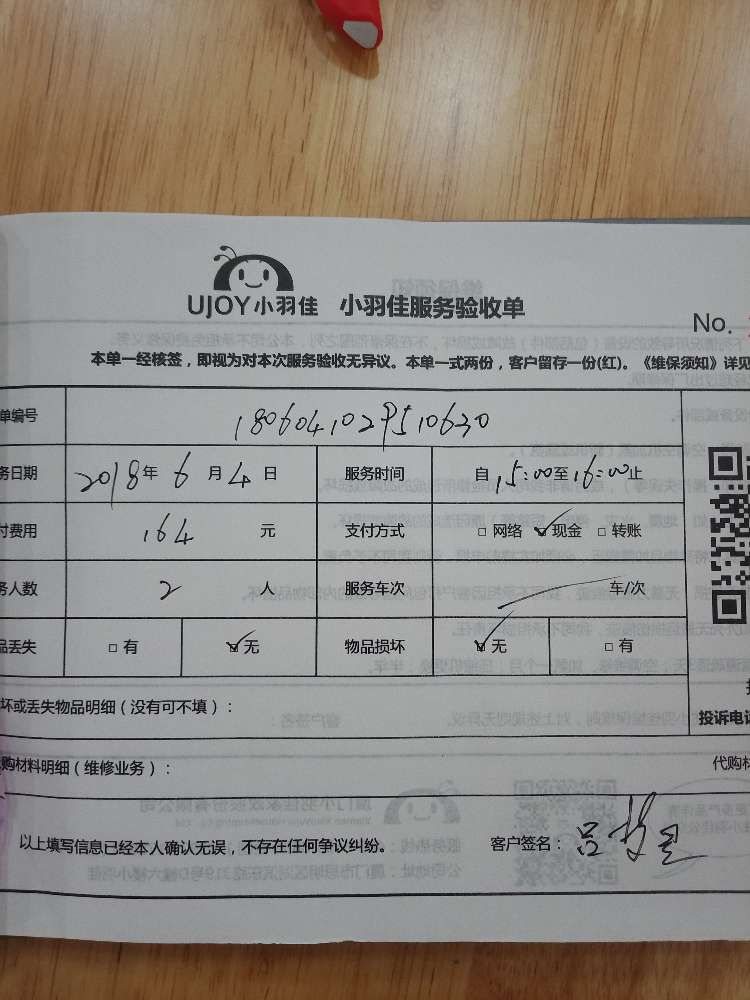 UJOY小羽佳 小羽佳服务验收单
No.
本单一经核签，即视为对本次服务验收无异议。本单一式两份，客户留存一份(红)。《维保须知》详见
单编号 1806041029510630
务日期 2018年 6月4日 服务时间 自15:00至16:00止
付费用 164 元 支付方式 □网络 ☑现金 □转账
务人数 2 人 服务车次 车/次
品丢失 □有 ☑无 物品损坏 ☑无 □有
坏或丢失物品明细（没有可不填）：
投诉电话
购材料明细（维修业务）： 代购材
以上填写信息已经本人确认无误，不存在任何争议纠纷。 客户签名：